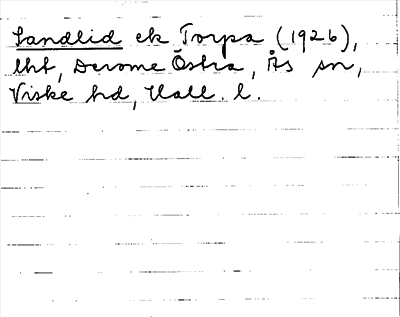 Sandlid ek Torpa (1926),
lht, Derome Östra, Ås sn,
Viske hd, Hall. l.